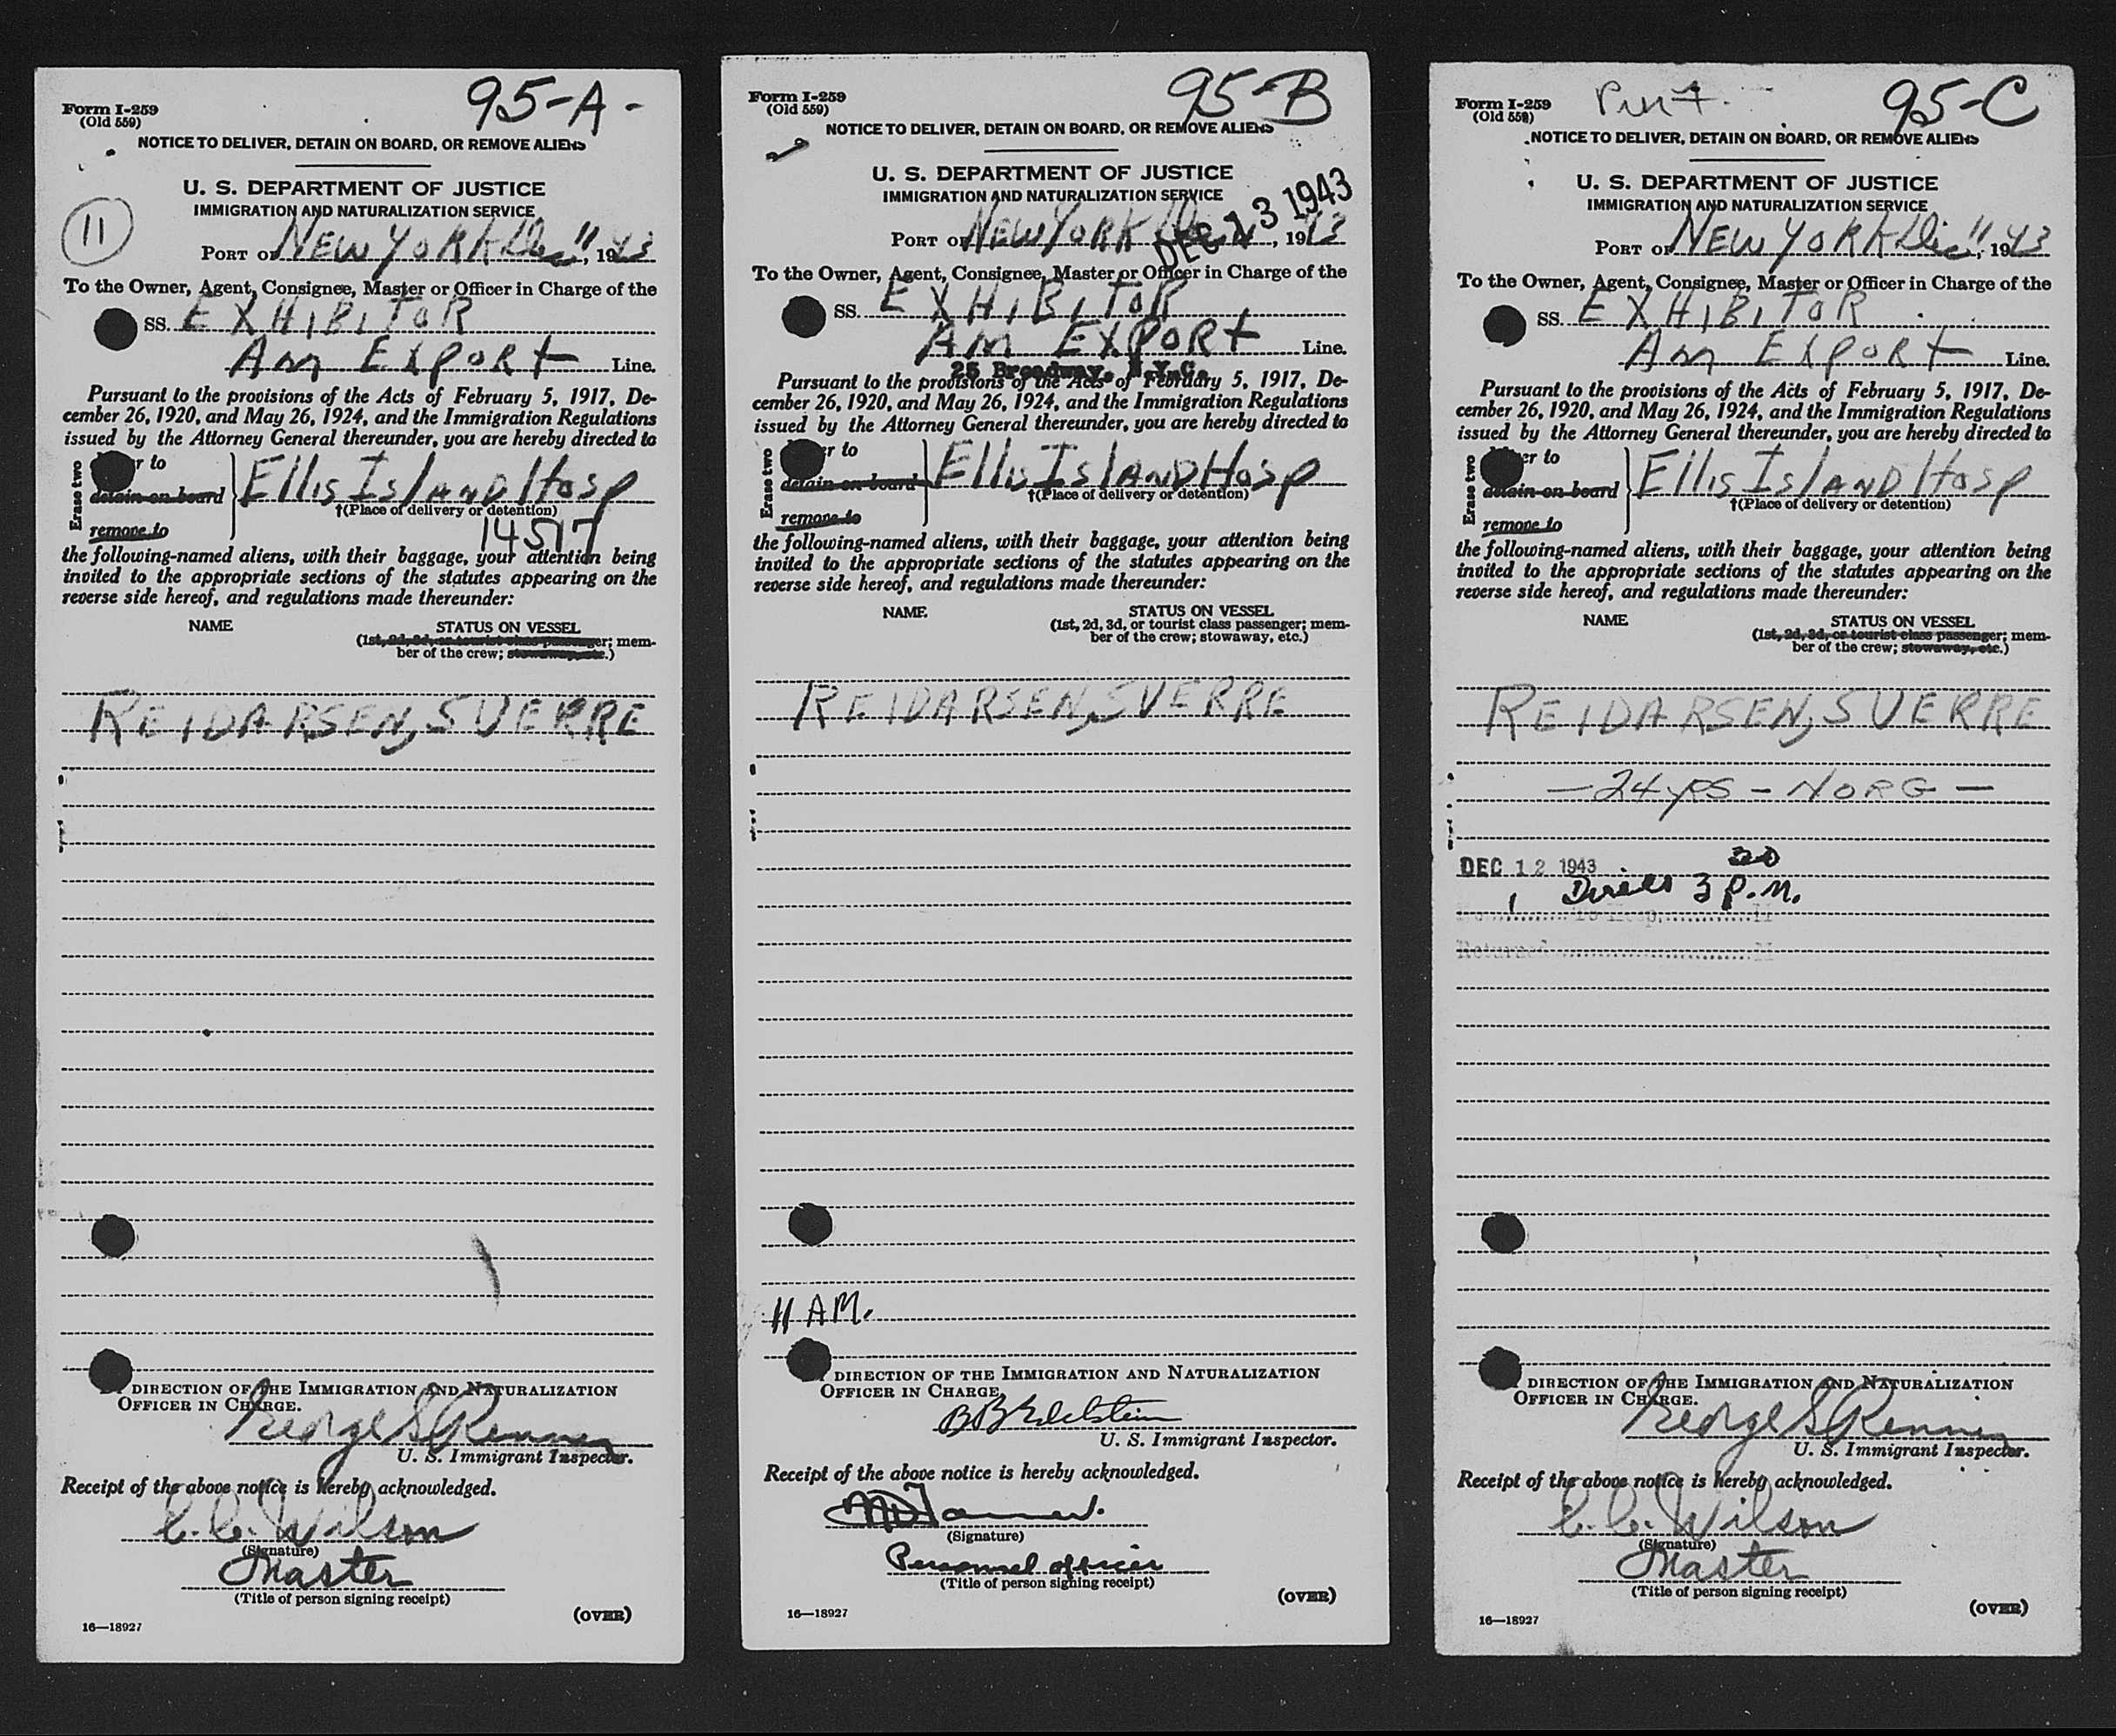 95-A-
Form I-259
(Old 559)
NOTICE TO DELIVER, DETAIN ON BOARD, OR REMOVE ALIENS
U. S. DEPARTMENT OF JUSTICE
IMMIGRATION AND NATURALIZATION SERVICE
11
PORT OF NEW YORK Dec 11, 1943
To the Owner, Agent, Consignee, Master or Officer in Charge of the
SS. EXHIBITOR
Am EXPORT Line.
Pursuant to the provisions of the Acts of February 5, 1917, De-
cember 26, 1920, and May 26, 1924, and the Immigration Regulations
issued by the Attorney General thereunder, you are hereby directed to
Erase two
r to
detain on board
remove to
Ellis ISlAND Hosp
†(Place of delivery or detention)
14517
the following-named aliens, with their baggage, your attention being
invited to the appropriate sections of the statutes appearing on the
reverse side hereof, and regulations made thereunder:
NAME STATUS ON VESSEL
(1st, 2d, 3d, or tourist class passenger; mem-
ber of the crew; stowaway, etc.)
REIDARSEN, SVERRE
DIRECTION OF THE IMMIGRATION AND NATURALIZATION
OFFICER IN CHARGE.
George S Renner
U. S. Immigrant Inspector.
Receipt of the above notice is hereby acknowledged.
C. C. Wilson
(Signature)
Master
(Title of person signing receipt)
(OVER)
16—18927
95-B
Form I-259
(Old 559)
NOTICE TO DELIVER, DETAIN ON BOARD, OR REMOVE ALIENS
U. S. DEPARTMENT OF JUSTICE
IMMIGRATION AND NATURALIZATION SERVICE
DEC 13 1943
PORT OF NEW YORK , 1943
To the Owner, Agent, Consignee, Master or Officer in Charge of the
SS. EXHIBITOR
Am EXPORT Line.
25 Broadway, N.Y.C.
Pursuant to the provisions of the Acts of February 5, 1917, De-
cember 26, 1920, and May 26, 1924, and the Immigration Regulations
issued by the Attorney General thereunder, you are hereby directed to
Erase two
r to
detain on board
remove to
Ellis ISlAND Hosp
†(Place of delivery or detention)
the following-named aliens, with their baggage, your attention being
invited to the appropriate sections of the statutes appearing on the
reverse side hereof, and regulations made thereunder:
NAME STATUS ON VESSEL
(1st, 2d, 3d, or tourist class passenger; mem-
ber of the crew; stowaway, etc.)
REIDARSEN, SVERRE
11 AM.
DIRECTION OF THE IMMIGRATION AND NATURALIZATION
OFFICER IN CHARGE.
B B Edelstein
U. S. Immigrant Inspector.
Receipt of the above notice is hereby acknowledged.
(Signature)
Personnel officer
(Title of person signing receipt)
(OVER)
16—18927
95-C
Form I-259
(Old 559)
NOTICE TO DELIVER, DETAIN ON BOARD, OR REMOVE ALIENS
U. S. DEPARTMENT OF JUSTICE
IMMIGRATION AND NATURALIZATION SERVICE
PORT OF NEW YORK Dec 11, 1943
To the Owner, Agent, Consignee, Master or Officer in Charge of the
SS. EXHIBITOR
Am EXPORT Line.
Pursuant to the provisions of the Acts of February 5, 1917, De-
cember 26, 1920, and May 26, 1924, and the Immigration Regulations
issued by the Attorney General thereunder, you are hereby directed to
Erase two
er to
detain on board
remove to
Ellis ISlAND Hosp
†(Place of delivery or detention)
the following-named aliens, with their baggage, your attention being
invited to the appropriate sections of the statutes appearing on the
reverse side hereof, and regulations made thereunder:
NAME STATUS ON VESSEL
(1st, 2d, 3d, or tourist class passenger; mem-
ber of the crew; stowaway, etc.)
REIDARSEN, SVERRE
— 24 yRS — NORG —
DEC 12 1943
1 3 P.M.
To Hosp. M
Returned M
DIRECTION OF THE IMMIGRATION AND NATURALIZATION
OFFICER IN CHARGE.
George S Renner
U. S. Immigrant Inspector.
Receipt of the above notice is hereby acknowledged.
C. C. Wilson
(Signature)
Master
(Title of person signing receipt)
(OVER)
16—18927